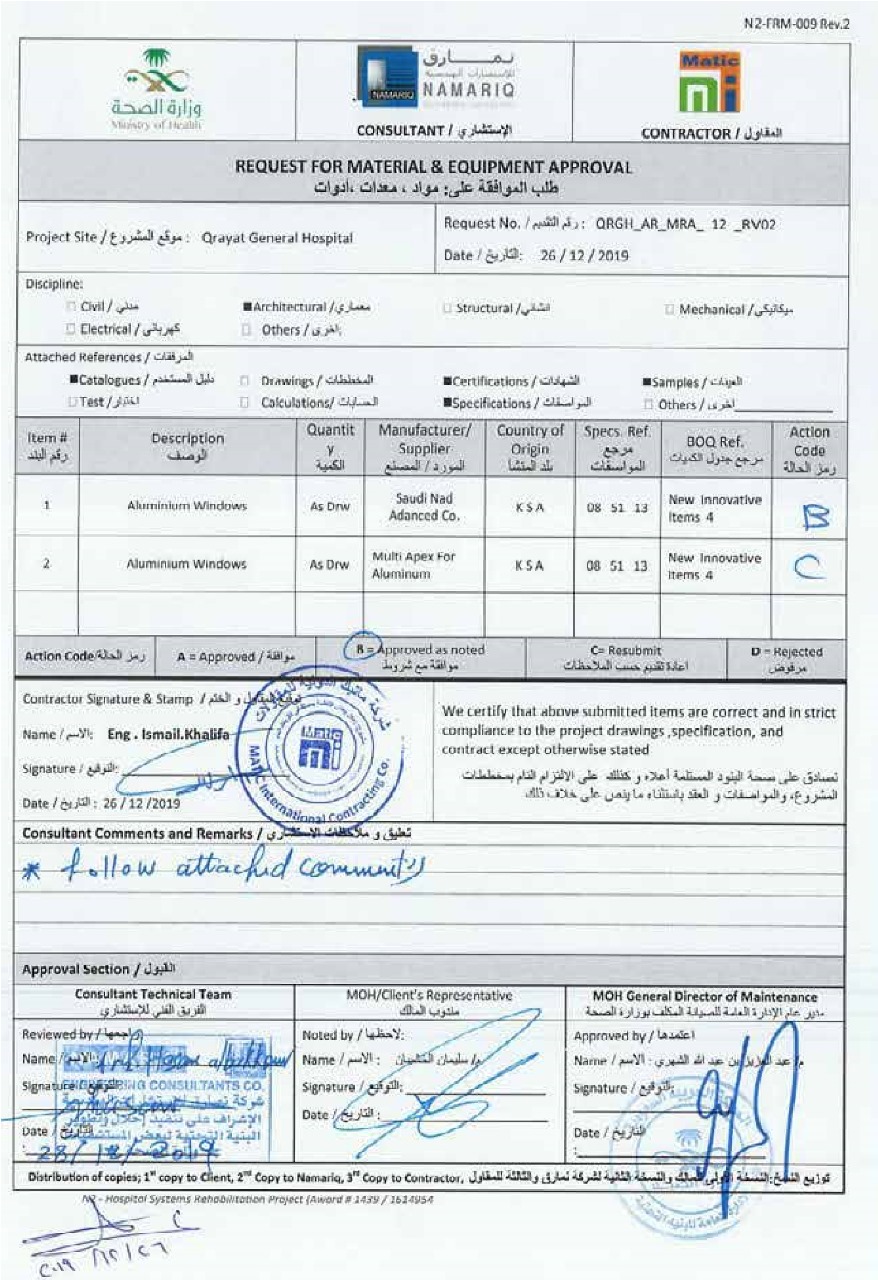 N2-FRM-009 Rev.2
وزارة الصحة
Ministry of Health
نمارق
للإستشارات الهندسية
NAMARIQ
NAMARIQ
CONSULTANT / الإستشاري
Matic
CONTRACTOR / المقاول
REQUEST FOR MATERIAL & EQUIPMENT APPROVAL
طلب الموافقة على: مواد ، معدات ،أدوات
Project Site / موقع المشروع : Qrayat General Hospital
Request No. / رقم التقديم : QRGH_AR_MRA_ 12 _RV02
Date / التاريخ: 26 / 12 / 2019
Discipline:
□ Civil / مدني ■Architectural /معماري □ Structural /انشائي □ Mechanical /ميكانيكي
□ Electrical / كهربائي □ Others / اخرى:
Attached References / المرفقات
■Catalogues / دليل المستخدم □ Drawings / المخططات ■Certifications / الشهادات ■Samples / العينات
□Test /اختبار □ Calculations/ الحسابات ■Specifications / المواصفات □ Others / اخرى
Item # رقم البند
Description الوصف
Quantity الكمية
Manufacturer/ Supplier المورد / المصنع
Country of Origin بلد المنشأ
Specs. Ref. مرجع المواصفات
BOQ Ref. مرجع جدول الكميات
Action Code رمز الحالة
1 Aluminium Windows As Drw Saudi Nad Adanced Co. K S A 08 51 13 New Innovative Items 4 B
2 Aluminium Windows As Drw Multi Apex For Aluminum K S A 08 51 13 New Innovative Items 4 C
Action Code/رمز الحالة A = Approved / موافقة B = Approved as noted موافقة مع شروط C= Resubmit اعادة تقديم حسب الملاحظات D = Rejected مرفوض
Contractor Signature & Stamp / توقيع المقاول و الختم
Name / الاسم: Eng . Ismail.Khalifa
Signature / التوقيع:
Date / التاريخ : 26 / 12 /2019
شركة ماتيك الدولية للمقاولات
Matic
MATIC International Contracting Co.
We certify that above submitted items are correct and in strict
compliance to the project drawings ,specification, and
contract except otherwise stated
نصادق على صحة البنود المستلمة أعلاه و كذلك على الالتزام التام بمخططات
المشروع، والمواصفات و العقد باستثناء ما ينص على خلاف ذلك
Consultant Comments and Remarks / تعليق و ملاحظات الاستشاري
* follow attached comments
Approval Section / القبول
Consultant Technical Team
الفريق الفني للإستشاري
Reviewed by / راجعها
Name / الاسم:
Signature / التوقيع:
ENGINEERING CONSULTANTS CO.
الإشراف على تنفيذ إحلال وتطوير
البنية التحتية لبعض المستشفيات
Date / التاريخ
: 28/12/2019
MOH/Client's Representative
مندوب المالك
Noted by / لاحظها:
Name / الاسم : م/ سليمان
Signature / التوقيع:
Date / التاريخ :
MOH General Director of Maintenance
مدير عام الإدارة العامة للصيانة المكلف بوزارة الصحة
Approved by / اعتمدها
Name / الاسم : م/ عبد العزيز بن عبد الله الشهري
Signature / التوقيع:
Date / التاريخ
:
Distribution of copies; 1st copy to Client, 2nd Copy to Namariq, 3rd Copy to Contractor, توزيع النسخ: النسخة الأولى للمالك والنسخة الثانية لشركة نمارق والثالثة للمقاول
N2 - Hospital Systems Rehabilitation Project (Award # 1439 / 1614954
٢٠١٩/١٢/٢٦